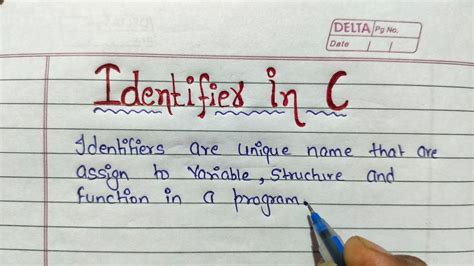 DELTA Pg No.
Date
Identifier in C
Identifiers are unique name that are
assign to Variable, Structure and
function in a program.